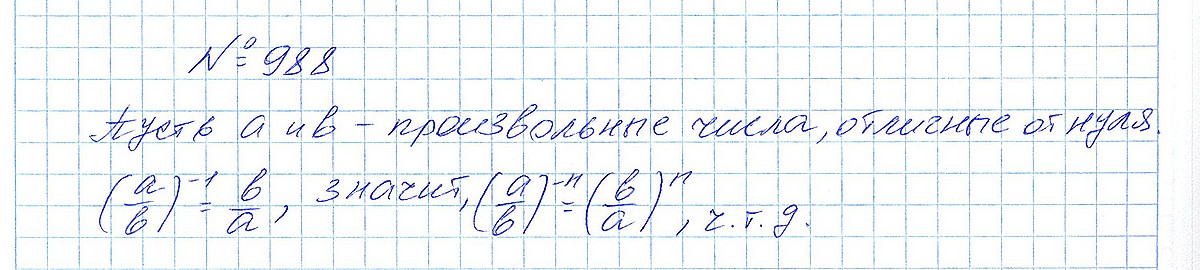 №988
Пусть a и b – произвольные числа, отличные от нуля.
(a/b)^-1 = b/a, значит, (a/b)^-n = (b/a)^n, ч.т.д.